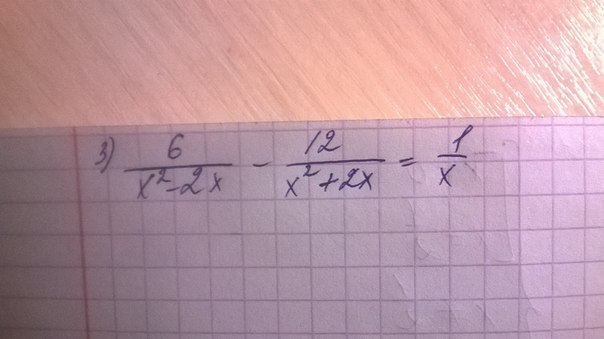 3) 6/(x²-2x) - 12/(x²+2x) = 1/x